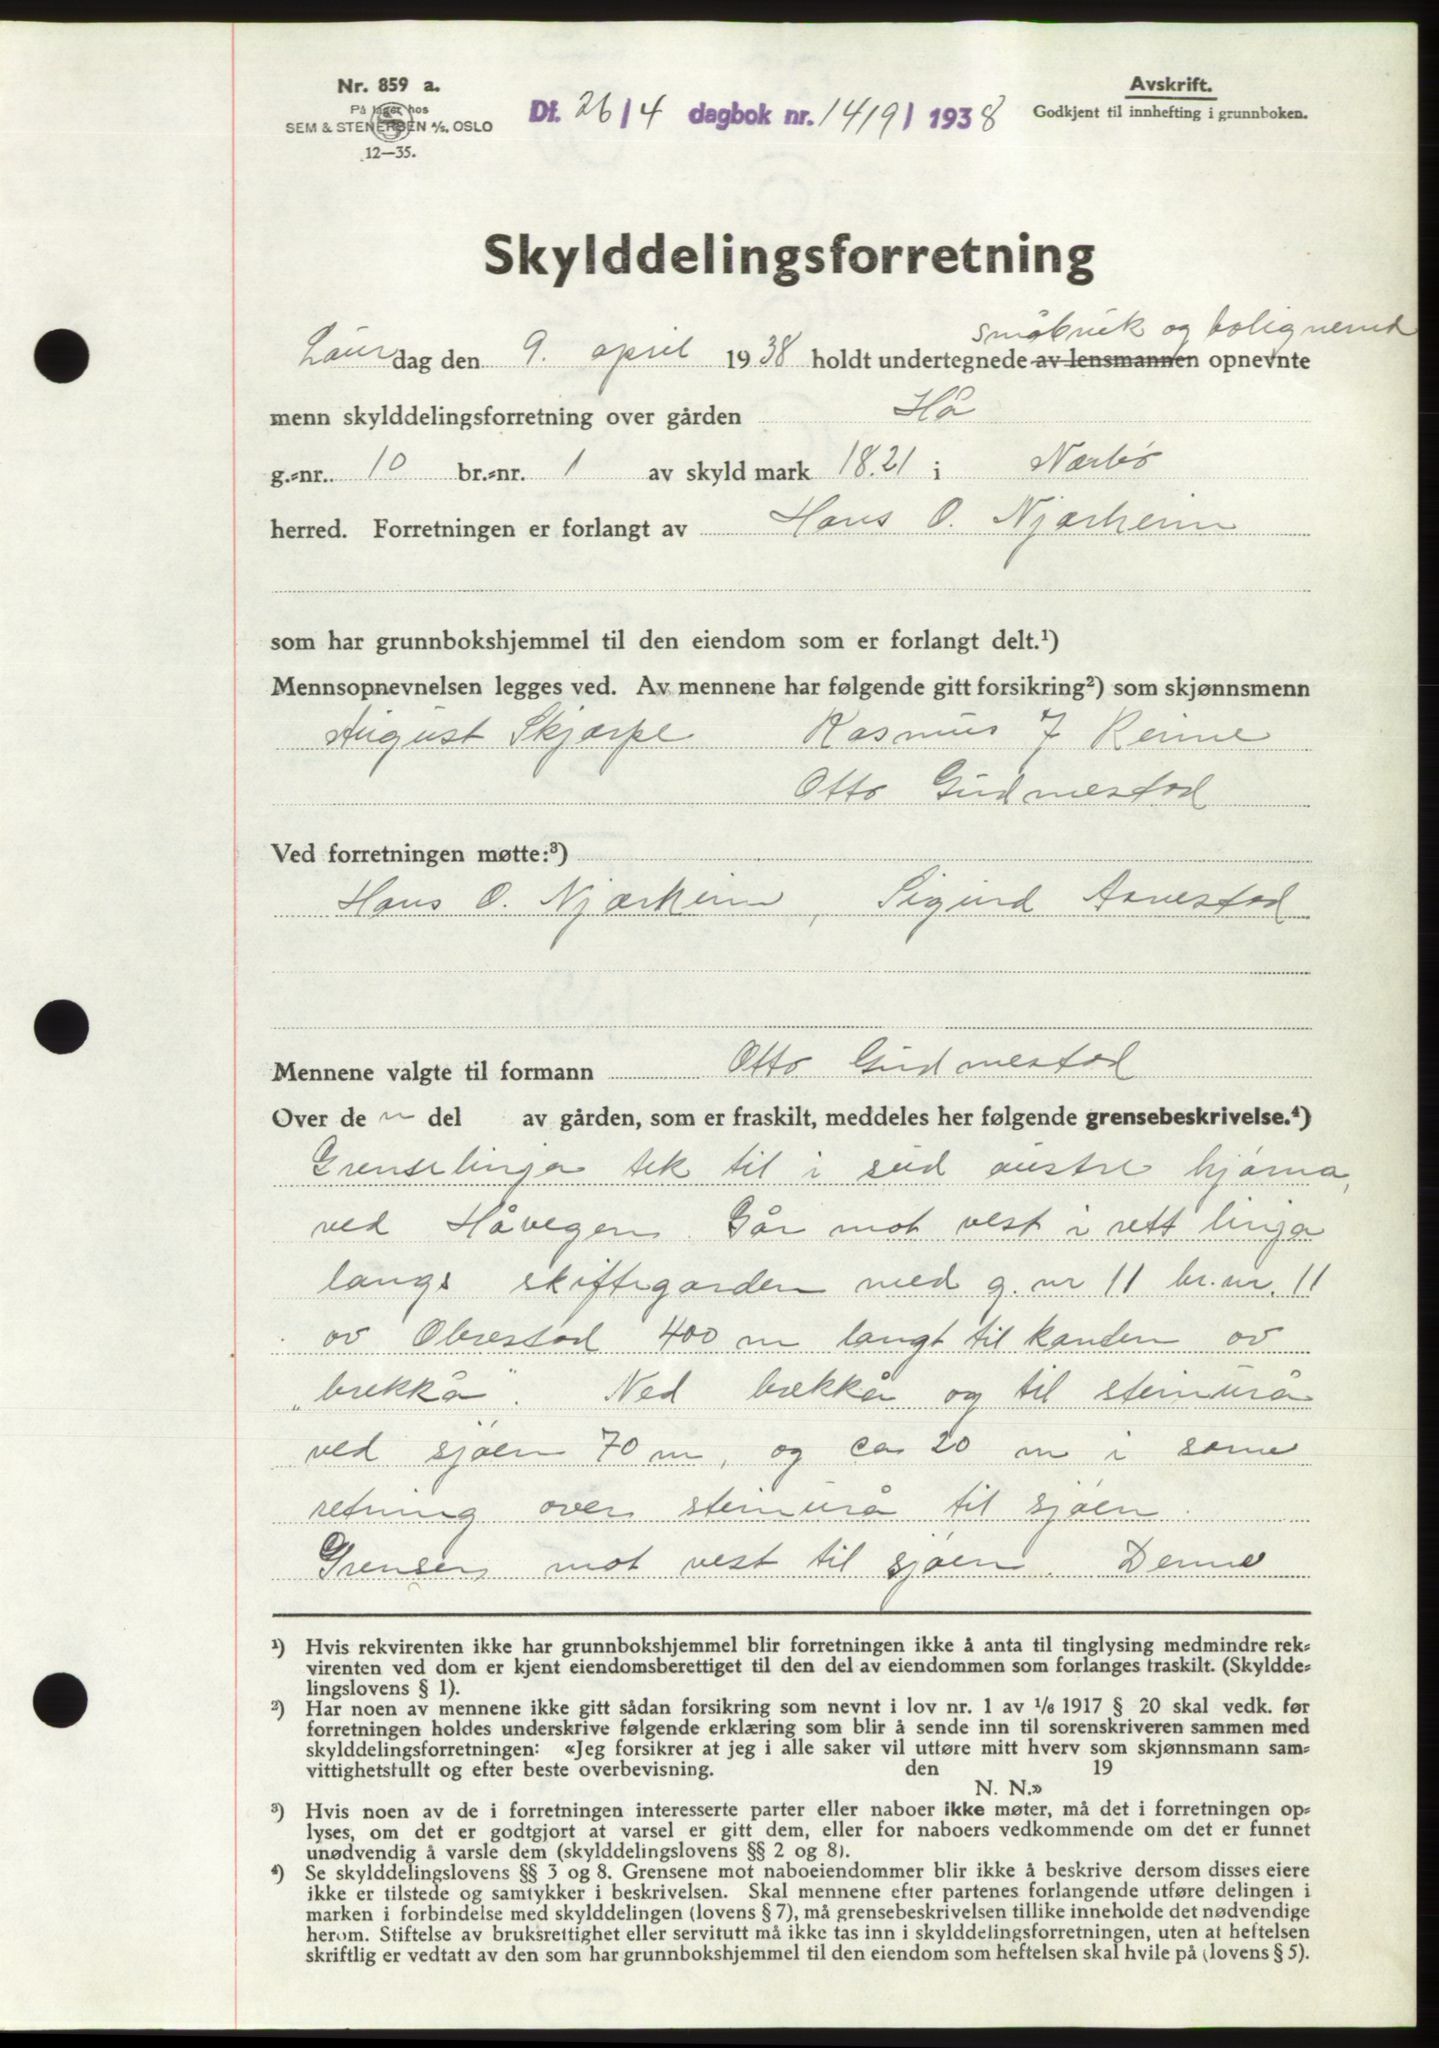 Nr. 859 a.
På lager hos
SEM & STENERSEN A/S, OSLO
12—35.
Df. 26/4 dagbok nr. 1419/1938
Avskrift.
Godkjent til innhefting i grunnboken.
Skylddelingsforretning
småbruk og bolignemd
Laurdag den 9. april 1938 holdt undertegnede av lensmannen opnevnte
menn skylddelingsforretning over gården Hå
g.=nr. 10 br.=nr. 1 av skyld mark 18.21 i Nærbø
herred. Forretningen er forlangt av Hans O. Njærheim
som har grunnbokshjemmel til den eiendom som er forlangt delt.¹)
Mennsopnevnelsen legges ved. Av mennene har følgende gitt forsikring²) som skjønnsmenn
August Skjærpe Rasmus J Reime
Otto Gudmestad
Ved forretningen møtte:³)
Hans O. Njærheim, Sigurd Aanestad
Mennene valgte til formann Otto Gudmestad
Over de n del av gården, som er fraskilt, meddeles her følgende grensebeskrivelse.⁴)
Grenselinja tek til i sud austre hjørna,
ved Håvegen. Går mot vest i rett linja
langs skiftegarden med g. nr 11 br. nr. 11
av Obrestad 400 m langt til kanten av
„brekkå". Ned brekkå og til steinurå
ved sjøen 70 m, og ca 20 m i same
retning over steinurå til sjøen.
Grensen mot vest til sjøen. Denne
¹) Hvis rekvirenten ikke har grunnbokshjemmel blir forretningen ikke å anta til tinglysing medmindre rek=
virenten ved dom er kjent eiendomsberettiget til den del av eiendommen som forlanges fraskilt. (Skyldde=
lingslovens § 1).
²) Har noen av mennene ikke gitt sådan forsikring som nevnt i lov nr. 1 av 1/6 1917 § 20 skal vedk. før
forretningen holdes underskrive følgende erklæring som blir å sende inn til sorenskriveren sammen med
skylddelingsforretningen: «Jeg forsikrer at jeg i alle saker vil utføre mitt hverv som skjønnsmann sam=
vittighetsfullt og efter beste overbevisning. den 19
N. N.»
³) Hvis noen av de i forretningen interesserte parter eller naboer ikke møter, må det i forretningen op=
lyses, om det er godtgjort at varsel er gitt dem, eller for naboers vedkommende om det er funnet
unødvendig å varsle dem (skylddelingslovens §§ 2 og 8).
⁴) Se skylddelingslovens §§ 3 og 8. Grensene mot naboeiendommer blir ikke å beskrive dersom disses eiere
ikke er tilstede og samtykker i beskrivelsen. Skal mennene efter partenes forlangende utføre delingen i
marken i forbindelse med skylddelingen (lovens § 7), må grensebeskrivelsen tillike inneholde det nødvendige
herom. Stiftelse av bruksrettighet eller servitutt må ikke tas inn i skylddelingsforretningen, uten at heftelsen
skriftlig er vedtatt av den som har grunnbokshjemmel til den eiendom som heftelsen skal hvile på (lovens § 5).